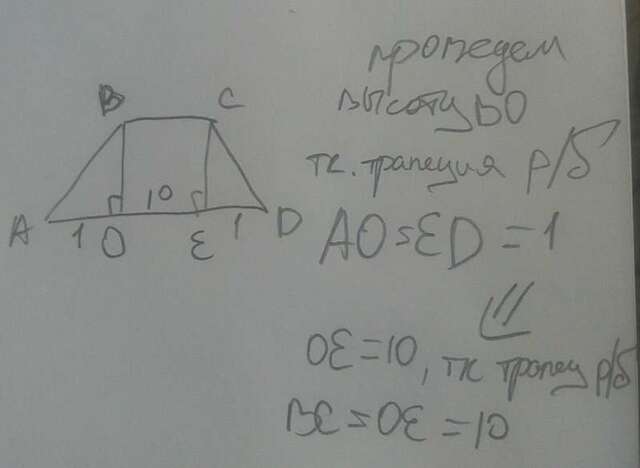 проведем
высоту BO
тк. трапеция р/б
AO = ED = 1
OE = 10, тк трапец р/б
BC = OE = 10
B C
10
A 1 O E 1 D